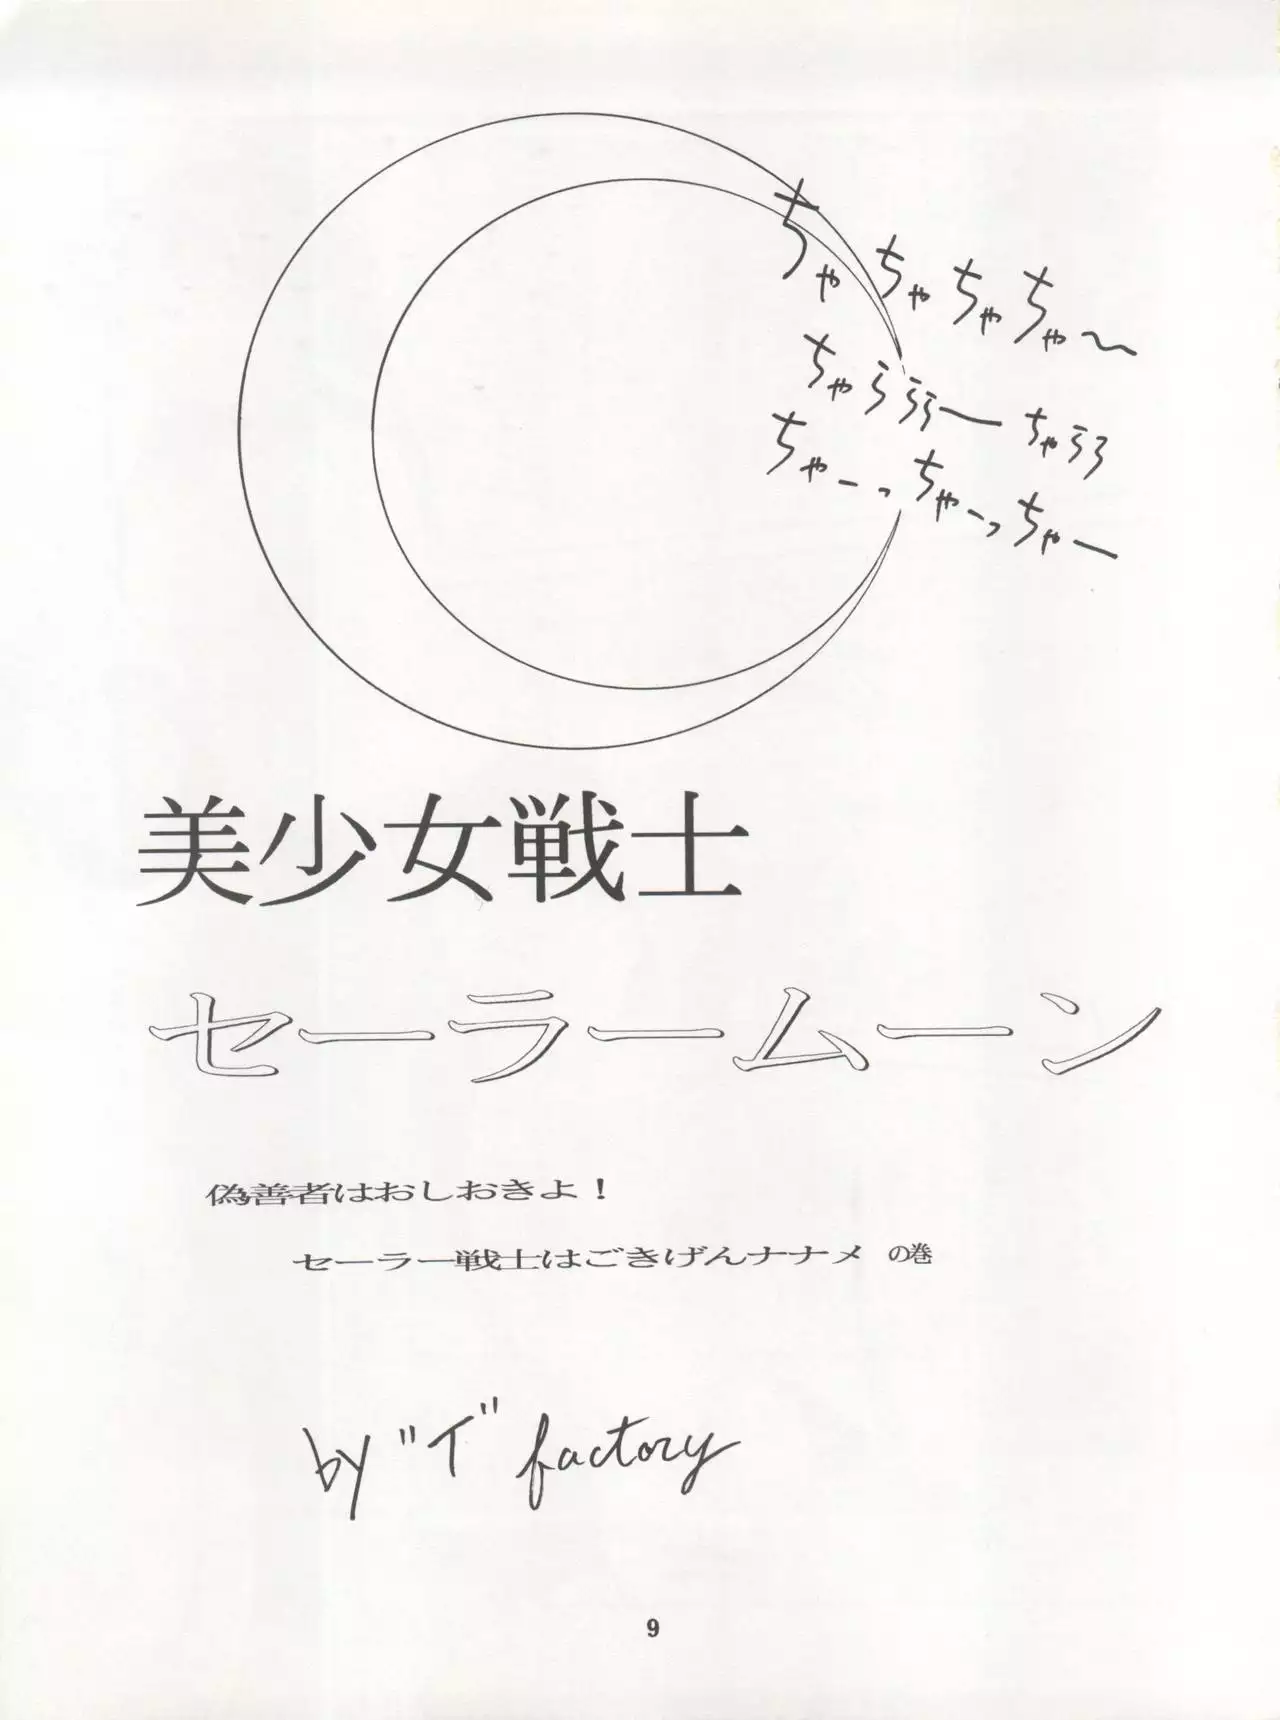 ちゃ ちゃちゃちゃ〜
ちゃららら〜ちゃらら
ちゃーっちゃーっちゃー
美少女戦士
セーラームーン
偽善者はおしおきよ！
セーラー戦士はごきげんナナメ の巻
by "イ" factory
9